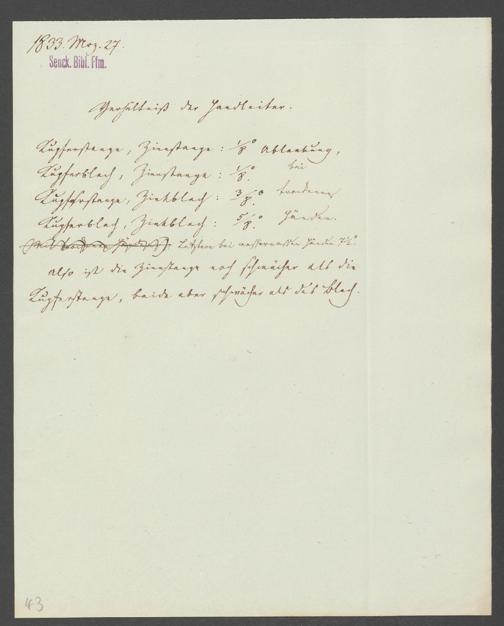 1833. Mrz. 27.
Senck. Bibl. Ffm.
Verhältniß der Handleiter.
Kupferstange, Zinnstange: 1/8° Ablenkung,
Kupferblech, Zinnstange: 1/8.° bei
Kupferstange, Zinkblech: 3/8.° trockenen
Kupferblech, Zinkblech: 5/8.° Händen.
Letztere bei wassernassen Händen
also ist die Zinnstange noch schwächer als die
Kupferstange, beide aber schwächer als das Blech.
43